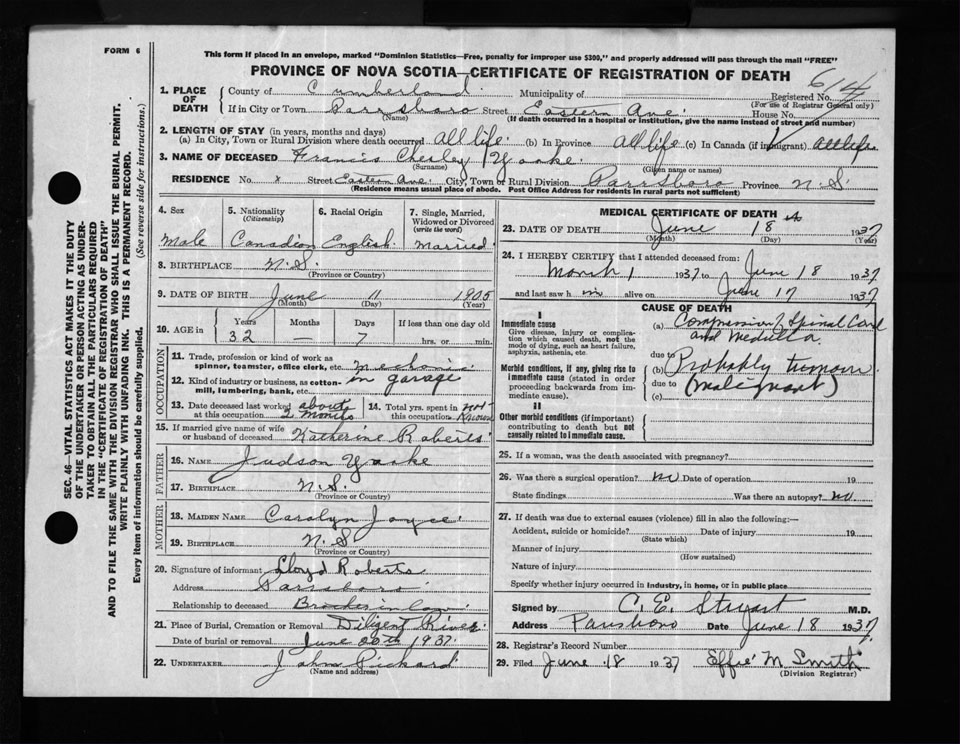 FORM 6
This form if placed in an envelope, marked "Dominion Statistics—Free, penalty for improper use $300," and properly addressed will pass through the mail "FREE"
PROVINCE OF NOVA SCOTIA—CERTIFICATE OF REGISTRATION OF DEATH
614
1. PLACE OF DEATH
County of Cumberland Municipality of Registered No.
(For use of Registrar General only)
If in City or Town Parrsboro Street Eastern Ave. House No.
(Name) (If death occurred in a hospital or institution, give the name instead of street and number)
2. LENGTH OF STAY (in years, months and days)
(a) In City, Town or Rural Division where death occurred All life. (b) In Province All life (c) In Canada (if immigrant) All life
3. NAME OF DECEASED Francis Chesley Yorke.
(Surname) (Given name or names)
RESIDENCE No. x Street Eastern Ave. City, Town or Rural Division Parrsboro Province N.S.
(Residence means usual place of abode. Post Office Address for residents in rural parts not sufficient)
4. Sex
Male
5. Nationality
(Citizenship)
Canadian
6. Racial Origin
English.
7. Single, Married, Widowed or Divorced
(write the word)
Married.
8. BIRTHPLACE N.S.
(Province or County)
9. DATE OF BIRTH June 11 1905
(Month) (Day) (Year)
10. AGE in
Years Months Days If less than one day old
32 — 7 hrs. or min.
OCCUPATION
11. Trade, profession or kind of work as spinner, teamster, office clerk, etc. mechanic
12. Kind of industry or business, as cotton-mill, lumbering, bank, etc. in garage
13. Date deceased last worked at this occupation about 2 months
14. Total yrs. spent in this occupation not known
15. If married give name of wife or husband of deceased Katherine Roberts.
FATHER
16. NAME Judson Yorke
17. BIRTHPLACE N.S.
(Province or Country)
MOTHER
18. MAIDEN NAME Carolyn Joyce.
19. BIRTHPLACE N.S
(Province or Country)
20. Signature of informant Lloyd Roberts
Address Parrsboro
Relationship to deceased Brother in law.
21. Place of Burial, Cremation or Removal Diligent River.
Date of burial or removal June 20th 1937.
22. UNDERTAKER John Pickard
(Name and address)
MEDICAL CERTIFICATE OF DEATH
23. DATE OF DEATH June 18 1937
(Month) (Day) (Year)
24. I HEREBY CERTIFY that I attended deceased from:
March 1 1937 to June 18 1937
and last saw h im alive on June 17 1937
CAUSE OF DEATH
I
Immediate cause
Give disease, injury or complication which caused death, not the mode of dying, such as heart failure, asphyxia, asthenia, etc.
(a) Compression of Spinal Cord
and Medulla.
due to
Morbid conditions, if any, giving rise to immediate cause (stated in order proceeding backwards from immediate cause).
(b) Probably tumour
due to (malignant)
(c)
II
Other morbid conditions (if important) contributing to death but not causally related to immediate cause.
25. If a woman, was the death associated with pregnancy?
26. Was there a surgical operation? no Date of operation 19
State findings Was there an autopsy? no.
27. If death was due to external causes (violence) fill in also the following:—
Accident, suicide or homicide? Date of injury 19
(State which)
Manner of injury
(How sustained)
Nature of injury
Specify whether injury occurred in industry, in home, or in public place
Signed by C. E. Stuart M.D.
Address Parrsboro Date June 18 1937.
28. Registrar's Record Number
29. Filed June 18 1937 Effie M Smith
(Division Registrar)
SEC. 46—VITAL STATISTICS ACT MAKES IT THE DUTY
OF THE UNDERTAKER OR PERSON ACTING AS UNDER-
TAKER TO OBTAIN ALL THE PARTICULARS REQUIRED
IN THE "CERTIFICATE OF REGISTRATION OF DEATH"
AND TO FILE THE SAME WITH THE DIVISION REGISTRAR WHO SHALL ISSUE THE BURIAL PERMIT.
WRITE PLAINLY WITH UNFADING INK. THIS IS A PERMANENT RECORD.
Every item of information should be carefully supplied. (See reverse side for instructions.)